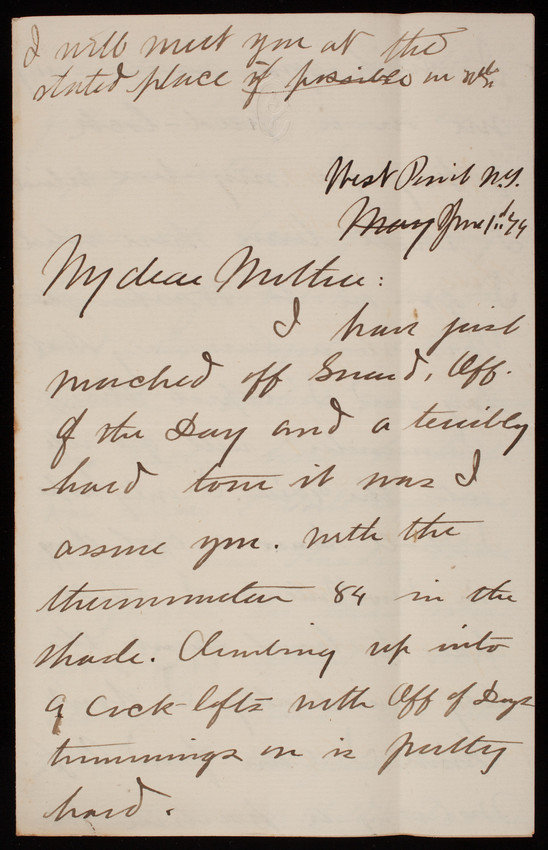 I will meet you at the
stated place if possible on
West Point N.Y.
May June 1st 74
My dear Mother:
I have just
marched off Guard, Off.
of the Day and a terribly
hard tour it was I
assure you. with the
thermometer 84 in the
shade. Climbing up into
9 Cock-lofts with Off of Days
trimmings on is pretty
hard.